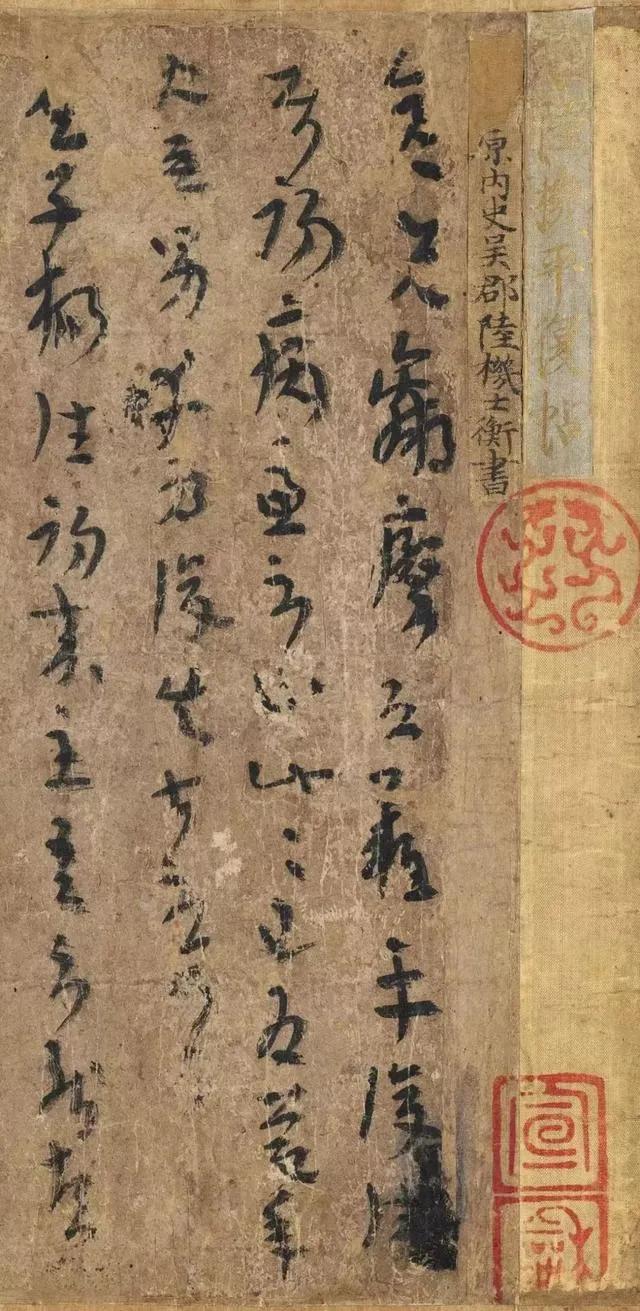 陸機平復帖
原內史吳郡陸機士衡書
彥先羸瘵恐難平復往屬
初病慮不止此々已為慶承
使唯男幸為復失前憂耳
吳子楊往初來主吾不能盡
宣
和